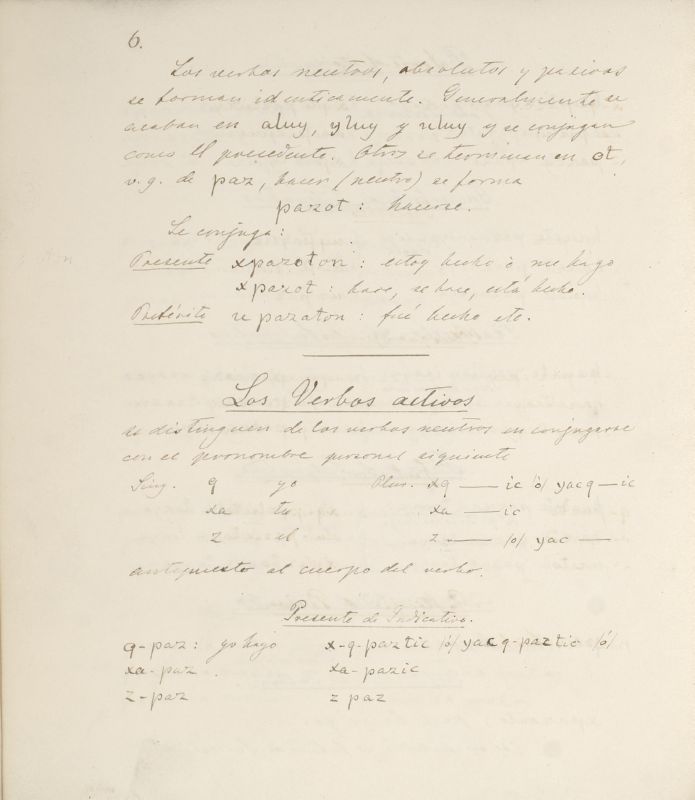 6.
Los verbos neutros, absolutos y pasivos
se forman identicamente. Generalmente se
acaban en aluy, yluy y uluy y se conjugan
como el precedente. Otros se terminan en ot,
v. g. de paz, hacer (neutro) se forma
pazot : hacerse.
Se conjuga :
Presente xpazoton : estoy hecho ò me hago
xpazot : hace, se hace, está hecho.
Pretérito u pazaton : fué hecho etc.
Los Verbos activos
se distinguen de los verbos neutros en conjugarse
con el pronombre personal siguiente
Sing. q yo Plur. xq — ic /ó/ yacq — ic
xa tu xa — ic
z el z — /o/ yac —
antepuesto al cuerpo del verbo.
Presente de Indicativo.
q-paz : yo hago x-q-paztic /ó/ yacq-paztic /ó/
xa-paz . xa-pazic
z-paz z paz